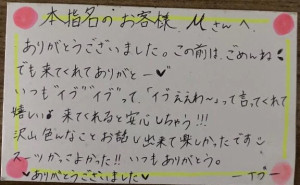 本指名のお客様、Mさんへ
ありがとうございました。この前は、ごめんね
でも来てくれてありがとー♥
いつも"イブ""イブ"って、「イブええわ~」って言ってくれて
嬉しいよ 来てくれると安心しちゃう!!!
沢山色んなことお話し出来て楽しかったです
スーツかっこよかった!! いつもありがとう。
♥ありがとうございました♥ ーイブー